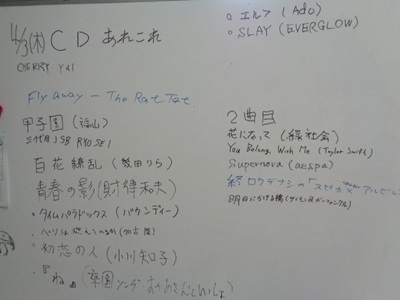 4/3(木) CD あれこれ
CHERRY
Fly away - The Rat Tat
甲子園 (福山)
三代目JSB RYOSEI
百花繚乱 (幾田りら)
青春の影(財津和夫)
・タイムパラドックス (バウンディー)
初恋の人 (小川知子)
(卒園ソング
。エルフ (Ado)
。SLAY (EVERGLOW)
2曲目
花になって (緑黄社会)
You Belong With Me (Taylor Swift)
Supernova (aespa)
ロクデナシの「スピカ
明日にかける橋(サイモン&ガーファンクル)